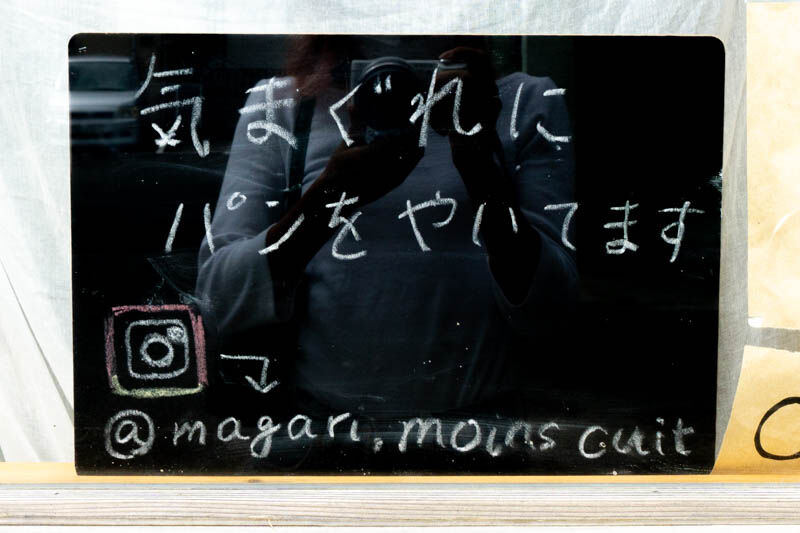 気まぐれに
パンをやいてます
@magari.moins cuit